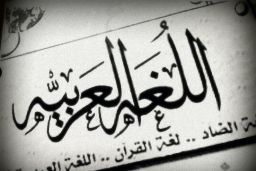 اللُغة العربيّه
ة الضاد .. لغة القرآن .. اللغة